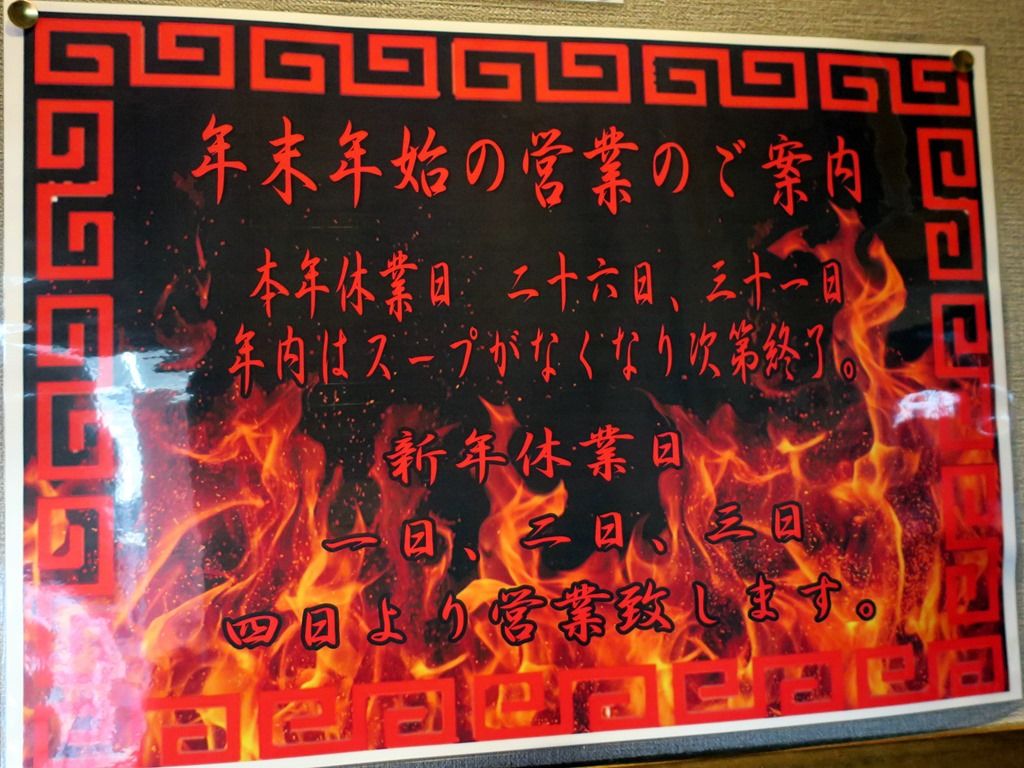 年末年始の営業のご案内
本年休業日　二十六日、三十一日
年内はスープがなくなり次第終了。
新年休業日
一日、二日、三日
四日より営業致します。